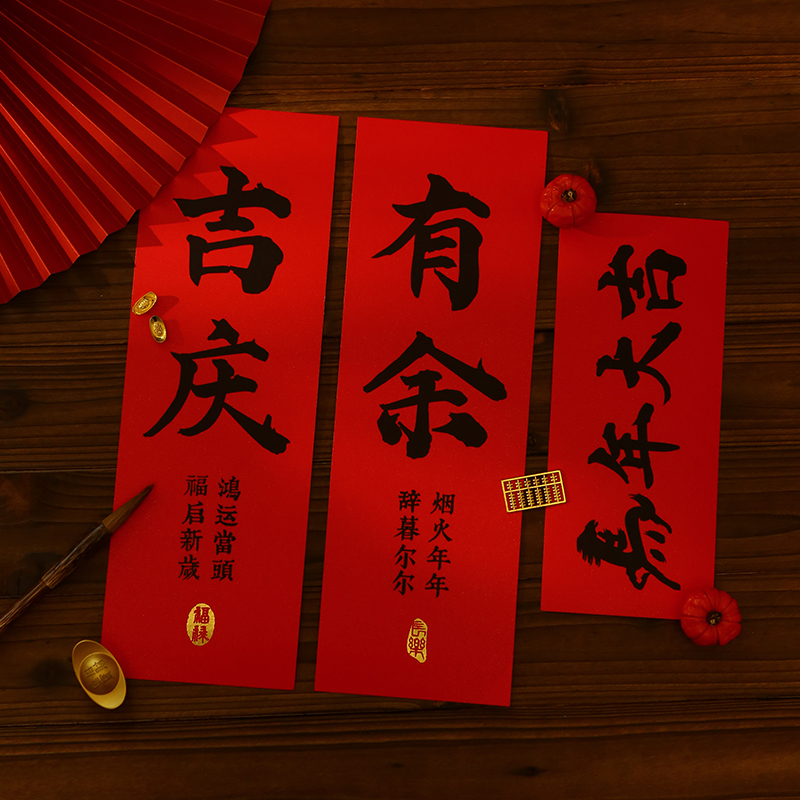 吉庆
鸿运當頭
福启新歲
福禄
有余
烟火年年
辞暮尔尔
長樂
馬年大吉